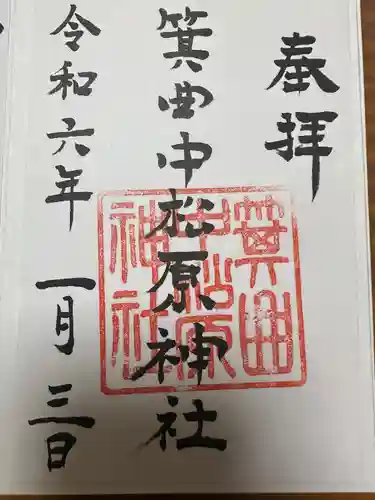 奉拝
箕曲中松原神社
令和六年 一月 三日
箕曲
中松原
神社